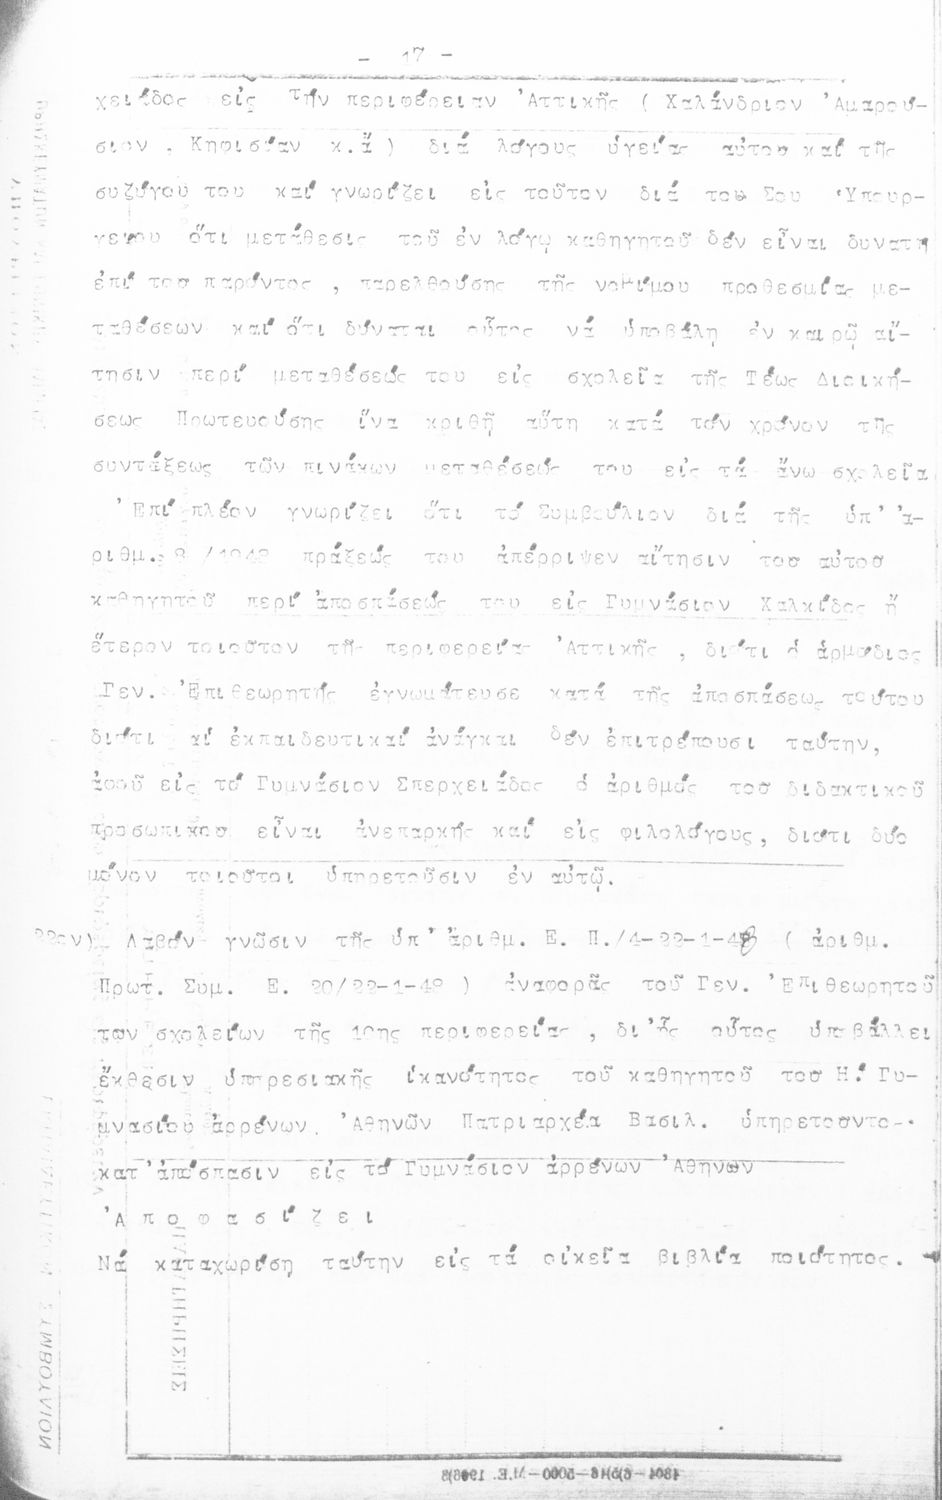 - 17 -
χειάδος εἰς τήν περιφέρειαν Ἀττικῆς ( Χαλάνδριον Ἀμαρού-
σιον , Κηφισίαν κ.ἄ ) διά λόγους ὑγείας αὐτοῦ καί τῆς
συζύγου του καί γνωρίζει εἰς τοῦτον διά τοῦ Σου Ὑπουρ-
γείου ὅτι μετάθεσις τοῦ ἐν λόγῳ καθηγητοῦ δέν εἶναι δυνατή
ἐπί τοῦ παρόντος , παρελθούσης τῆς νομίμου προθεσμίας με-
ταθέσεων καί ὅτι δύναται οὗτος νά ὑποβάλη ἐν καιρῷ αἴ-
τησιν περί μεταθέσεώς του εἰς σχολεῖα τῆς Τέως Διοική-
σεως Πρωτευούσης ἵνα κριθῇ αὕτη κατά τόν χρόνον τῆς
συντάξεως τῶν πινάκων μεταθέσεώς του εἰς τά ἄνω σχολεῖα
Ἐπί πλέον γνωρίζει ὅτι τό Συμβούλιον διά τῆς ὑπ' ἀ-
ριθμ. 8 /1948 πράξεώς του ἀπέρριψεν αἴτησιν τοῦ αὐτοῦ
καθηγητοῦ περί ἀποσπάσεώς του εἰς Γυμνάσιον Χαλκίδος ἤ
ἕτερον τοιοῦτον τῆς περιφερείας Ἀττικῆς , διότι ὁ ἁρμόδιος
Γεν. Ἐπιθεωρητής ἐγνωμάτευσε κατά τῆς ἀποσπάσεως τούτου
διότι αἱ ἐκπαιδευτικαί ἀνάγκαι δέν ἐπιτρέπουσι ταύτην,
ἀφοῦ εἰς τό Γυμνάσιον Σπερχειάδος ὁ ἀριθμός τοῦ διδακτικοῦ
προσωπικοῦ εἶναι ἀνεπαρκής καί εἰς φιλολόγους, διότι δύο
μόνον τοιοῦτοι ὑπηρετοῦσιν ἐν αὐτῷ.
22ον) Λαβόν γνῶσιν τῆς ὑπ' ἀριθμ. Ε. Π./4-22-1-48 ( ἀριθμ.
Πρωτ. Συμ. Ε. 20/22-1-48 ) ἀναφορᾶς τοῦ Γεν. Ἐπιθεωρητοῦ
τῶν σχολείων τῆς 10ης περιφερείας , δι'ἧς οὗτος ὑποβάλλει
ἔκθεσιν ὑπηρεσιακῆς ἱκανότητος τοῦ καθηγητοῦ τοῦ Η! Γυ-
μνασίου ἀρρένων Ἀθηνῶν Πατριαρχέα Βασιλ. ὑπηρετοῦντο-.
κατ'ἀπόσπασιν εἰς τό Γυμνάσιον ἀρρένων Ἀθηνῶν
Ἀ π ο φ α σ ί ζ ε ι
Νά καταχωρίση ταύτην εἰς τά οἰκεῖα βιβλία ποιότητος.